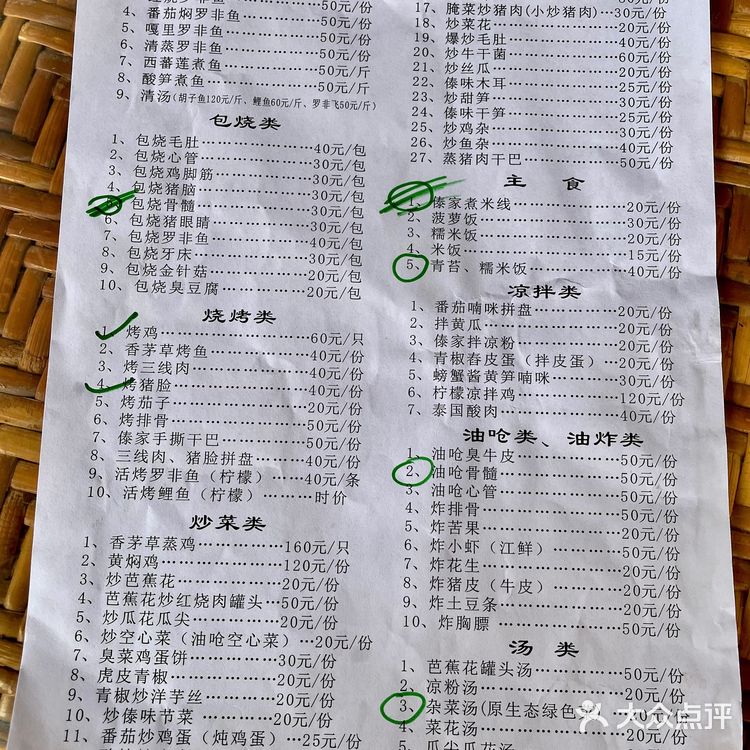 4、番茄焖罗非鱼……50元/份
5、嘎里罗非鱼……50元/份
6、清蒸罗非鱼……50元/份
7、西蕃莲煮鱼……50元/斤
8、酸笋煮鱼……50元/斤
9、清汤(胡子鱼120元/斤、鲤鱼60元/斤、罗非飞50元/斤)
包烧类
1、包烧毛肚……40元/包
2、包烧心管……30元/包
3、包烧鸡脚筋……30元/包
4、包烧猪脑……30元/包
5、包烧骨髓……30元/包
6、包烧猪眼睛……30元/包
7、包烧罗非鱼……40元/包
8、包烧牙床……30元/包
9、包烧金针菇……20元/包
10、包烧臭豆腐……20元/包
烧烤类
1、烤鸡……60元/只
2、香茅草烤鱼……40元/份
3、烤三线肉……40元/份
4、烤猪脸……40元/份
5、烤茄子……20元/份
6、烤排骨……40元/份
7、傣家手撕干巴……50元/份
8、三线肉、猪脸拼盘……40元/份
9、活烤罗非鱼（柠檬）……40元/条
10、活烤鲤鱼（柠檬）……时价
炒菜类
1、香茅草蒸鸡……160元/只
2、黄焖鸡……120元/份
3、炒芭蕉花……20元/份
4、芭蕉花炒红烧肉罐头…50元/份
5、炒瓜花瓜尖……20元/份
6、炒空心菜（油呛空心菜）…20元/份
7、臭菜鸡蛋饼……30元/份
8、虎皮青椒……20元/份
9、青椒炒洋芋丝……20元/份
10、炒傣味节菜……20元/份
11、番茄炒鸡蛋（炖鸡蛋）…25元/份
17、腌菜炒猪肉(小炒猪肉)…30元/份
18、炒菜花……20元/份
19、爆炒毛肚……40元/份
20、炒牛干菌……60元/份
21、炒丝瓜……20元/份
22、傣味木耳……30元/份
23、炒甜笋……30元/份
24、傣味干笋……30元/份
25、炒鸡杂……30元/份
26、炒鱼杂……40元/份
27、蒸猪肉干巴……50元/份
主 食
1、傣家煮米线……20元/份
2、菠萝饭……30元/份
3、糯米饭……20元/份
4、米饭……15元/份
5、青苔、糯米饭……40元/份
凉拌类
1、番茄喃咪拼盘……20元/份
2、拌黄瓜……20元/份
3、傣家拌凉粉……20元/份
4、青椒舂皮蛋（拌皮蛋）…20元/份
5、螃蟹酱黄笋喃咪……30元/份
6、柠檬凉拌鸡……120元/份
7、泰国酸肉……40元/份
油呛类、油炸类
1、油呛臭牛皮……50元/份
2、油呛骨髓……50元/份
3、油呛心管……50元/份
4、炸排骨……50元/份
5、炸苦果……20元/份
6、炸小虾（江鲜）……50元/份
7、炸花生……20元/份
8、炸猪皮（牛皮）……20元/份
9、炸土豆条……20元/份
10、炸胸膘……50元/份
汤 类
1、芭蕉花罐头汤……50元/份
2、凉粉汤……20元/份
3、杂菜汤(原生态绿色
4、菜花汤
5、瓜尖瓜花汤
大众点评